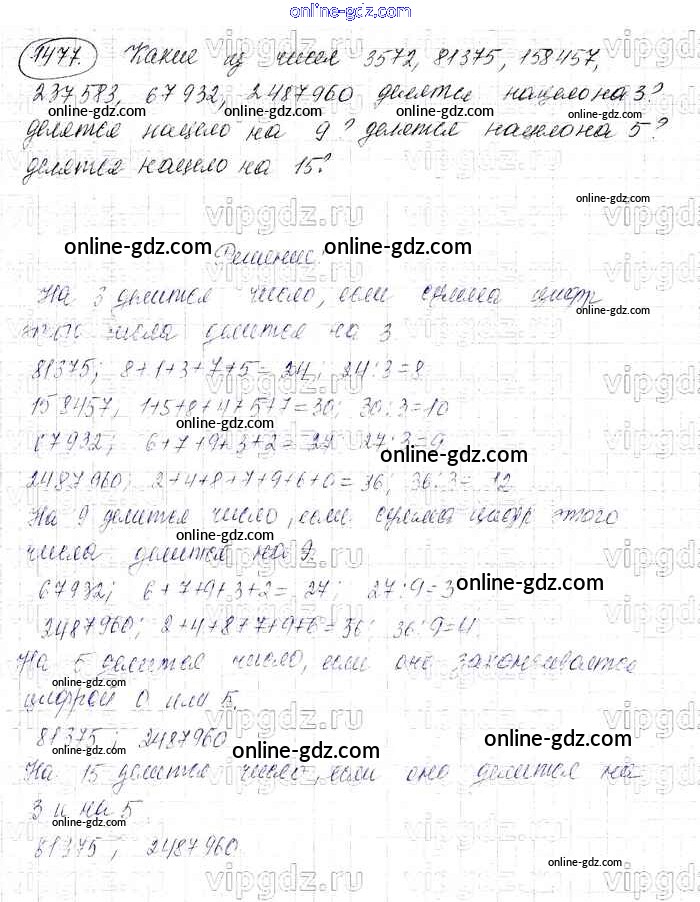 online-gdz.com
1477. Какие из чисел 3572, 81375, 158457,
237583, 67932, 2487960 делятся нацело на 3?
делятся нацело на 9? делятся нацело на 5?
делятся нацело на 15?
online-gdz.com
vipgdz.ru
online-gdz.com Решение: online-gdz.com
На 3 делится число, если сумма цифр
этого числа делится на 3.
online-gdz.com
81375; 8+1+3+7+5=24; 24:3=8
158457; 1+5+8+4+5+7=30; 30:3=10
online-gdz.com
67932; 6+7+9+3+2=27 27:3=9
online-gdz.com
2487960; 2+4+8+7+9+6+0=36; 36:3=12
На 9 делится число, если сумма цифр этого
online-gdz.com
числа делится на 9.
67932; 6+7+9+3+2=27; 27:9=3
online-gdz.com
2487960; 2+4+8+7+9+6=36; 36:9=4.
online-gdz.com
На 5 делится число, если оно заканчивается
online-gdz.com
цифрой 0 или 5.
81375; 2487960
online-gdz.com online-gdz.com
На 15 делится число, если оно делится на
3 и на 5
online-gdz.com
81375; 2487960
online-gdz.com
vipgdz.ru